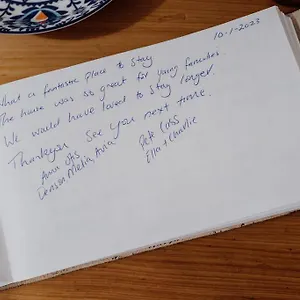 10-1-2023
What a fantastic place to stay
The house was so great for young families.
We would have loved to stay longer.
Thankyou See you next time.
Pete
Ella + Charlie